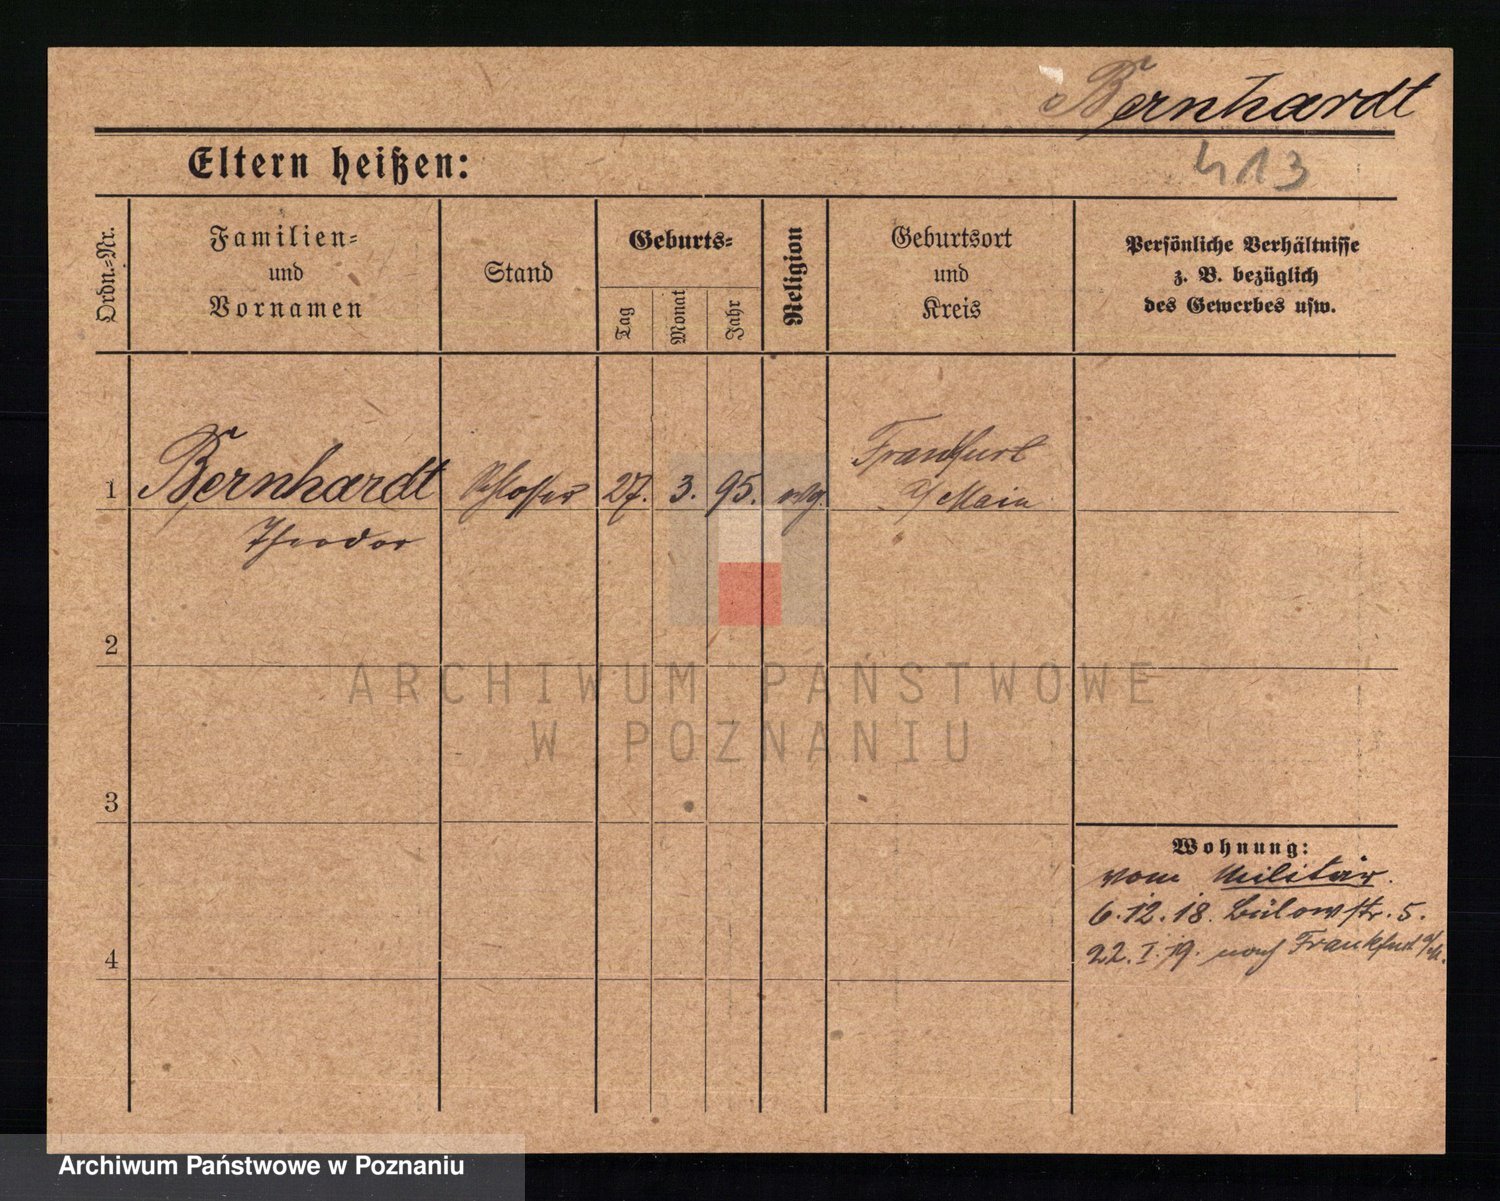 Bernhardt
413
Eltern heißen:
Ordn.=Nr.
Familien=
und
Vornamen
Stand
Geburts=
Tag
Monat
Jahr
Religion
Geburtsort
und
Kreis
Persönliche Verhältnisse
z. B. bezüglich
des Gewerbes usw.
1
Bernhardt
Theodor
Schlosser
27. 3. 95.
evg.
Frankfurt
a/Main
2
3
4
Wohnung:
vom Militär.
6.12.18. Bülowstr. 5.
22.I.19. nach Frankfurt a/M.
ARCHIWUM PAŃSTWOWE
W POZNANIU
Archiwum Państwowe w Poznaniu